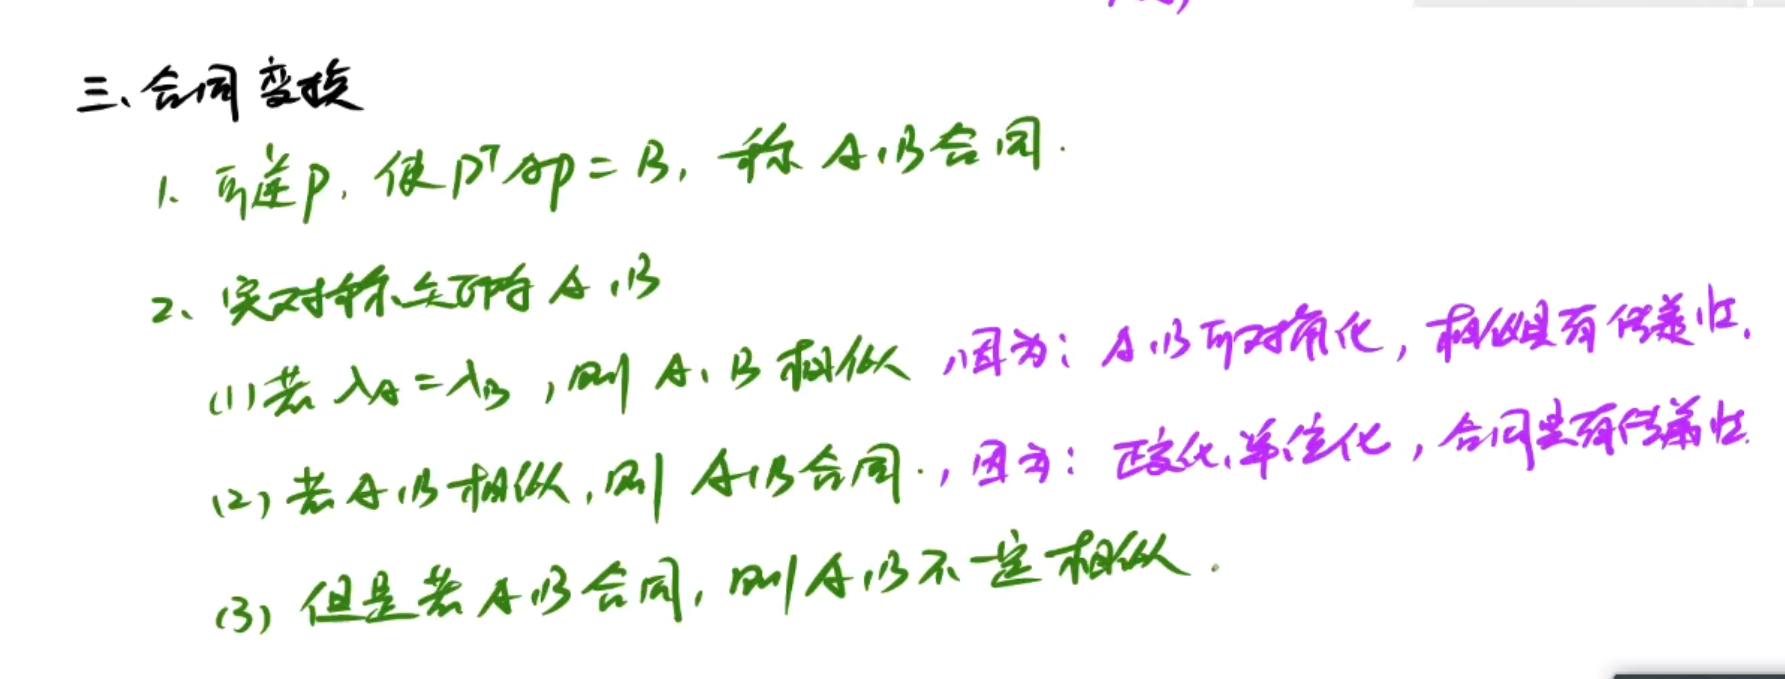 三、合同变换
1. 可逆P, 使PᵀAP=B, 称A、B合同.
2、实对称矩阵A、B
(1)若λA=λB,则A、B相似,因为:A、B可对角化,相似具有传递性.
(2)若A、B相似,则A、B合同.,因为:正交化、单位化,合同具有传递性.
(3)但是若A、B合同,则A、B不一定相似.